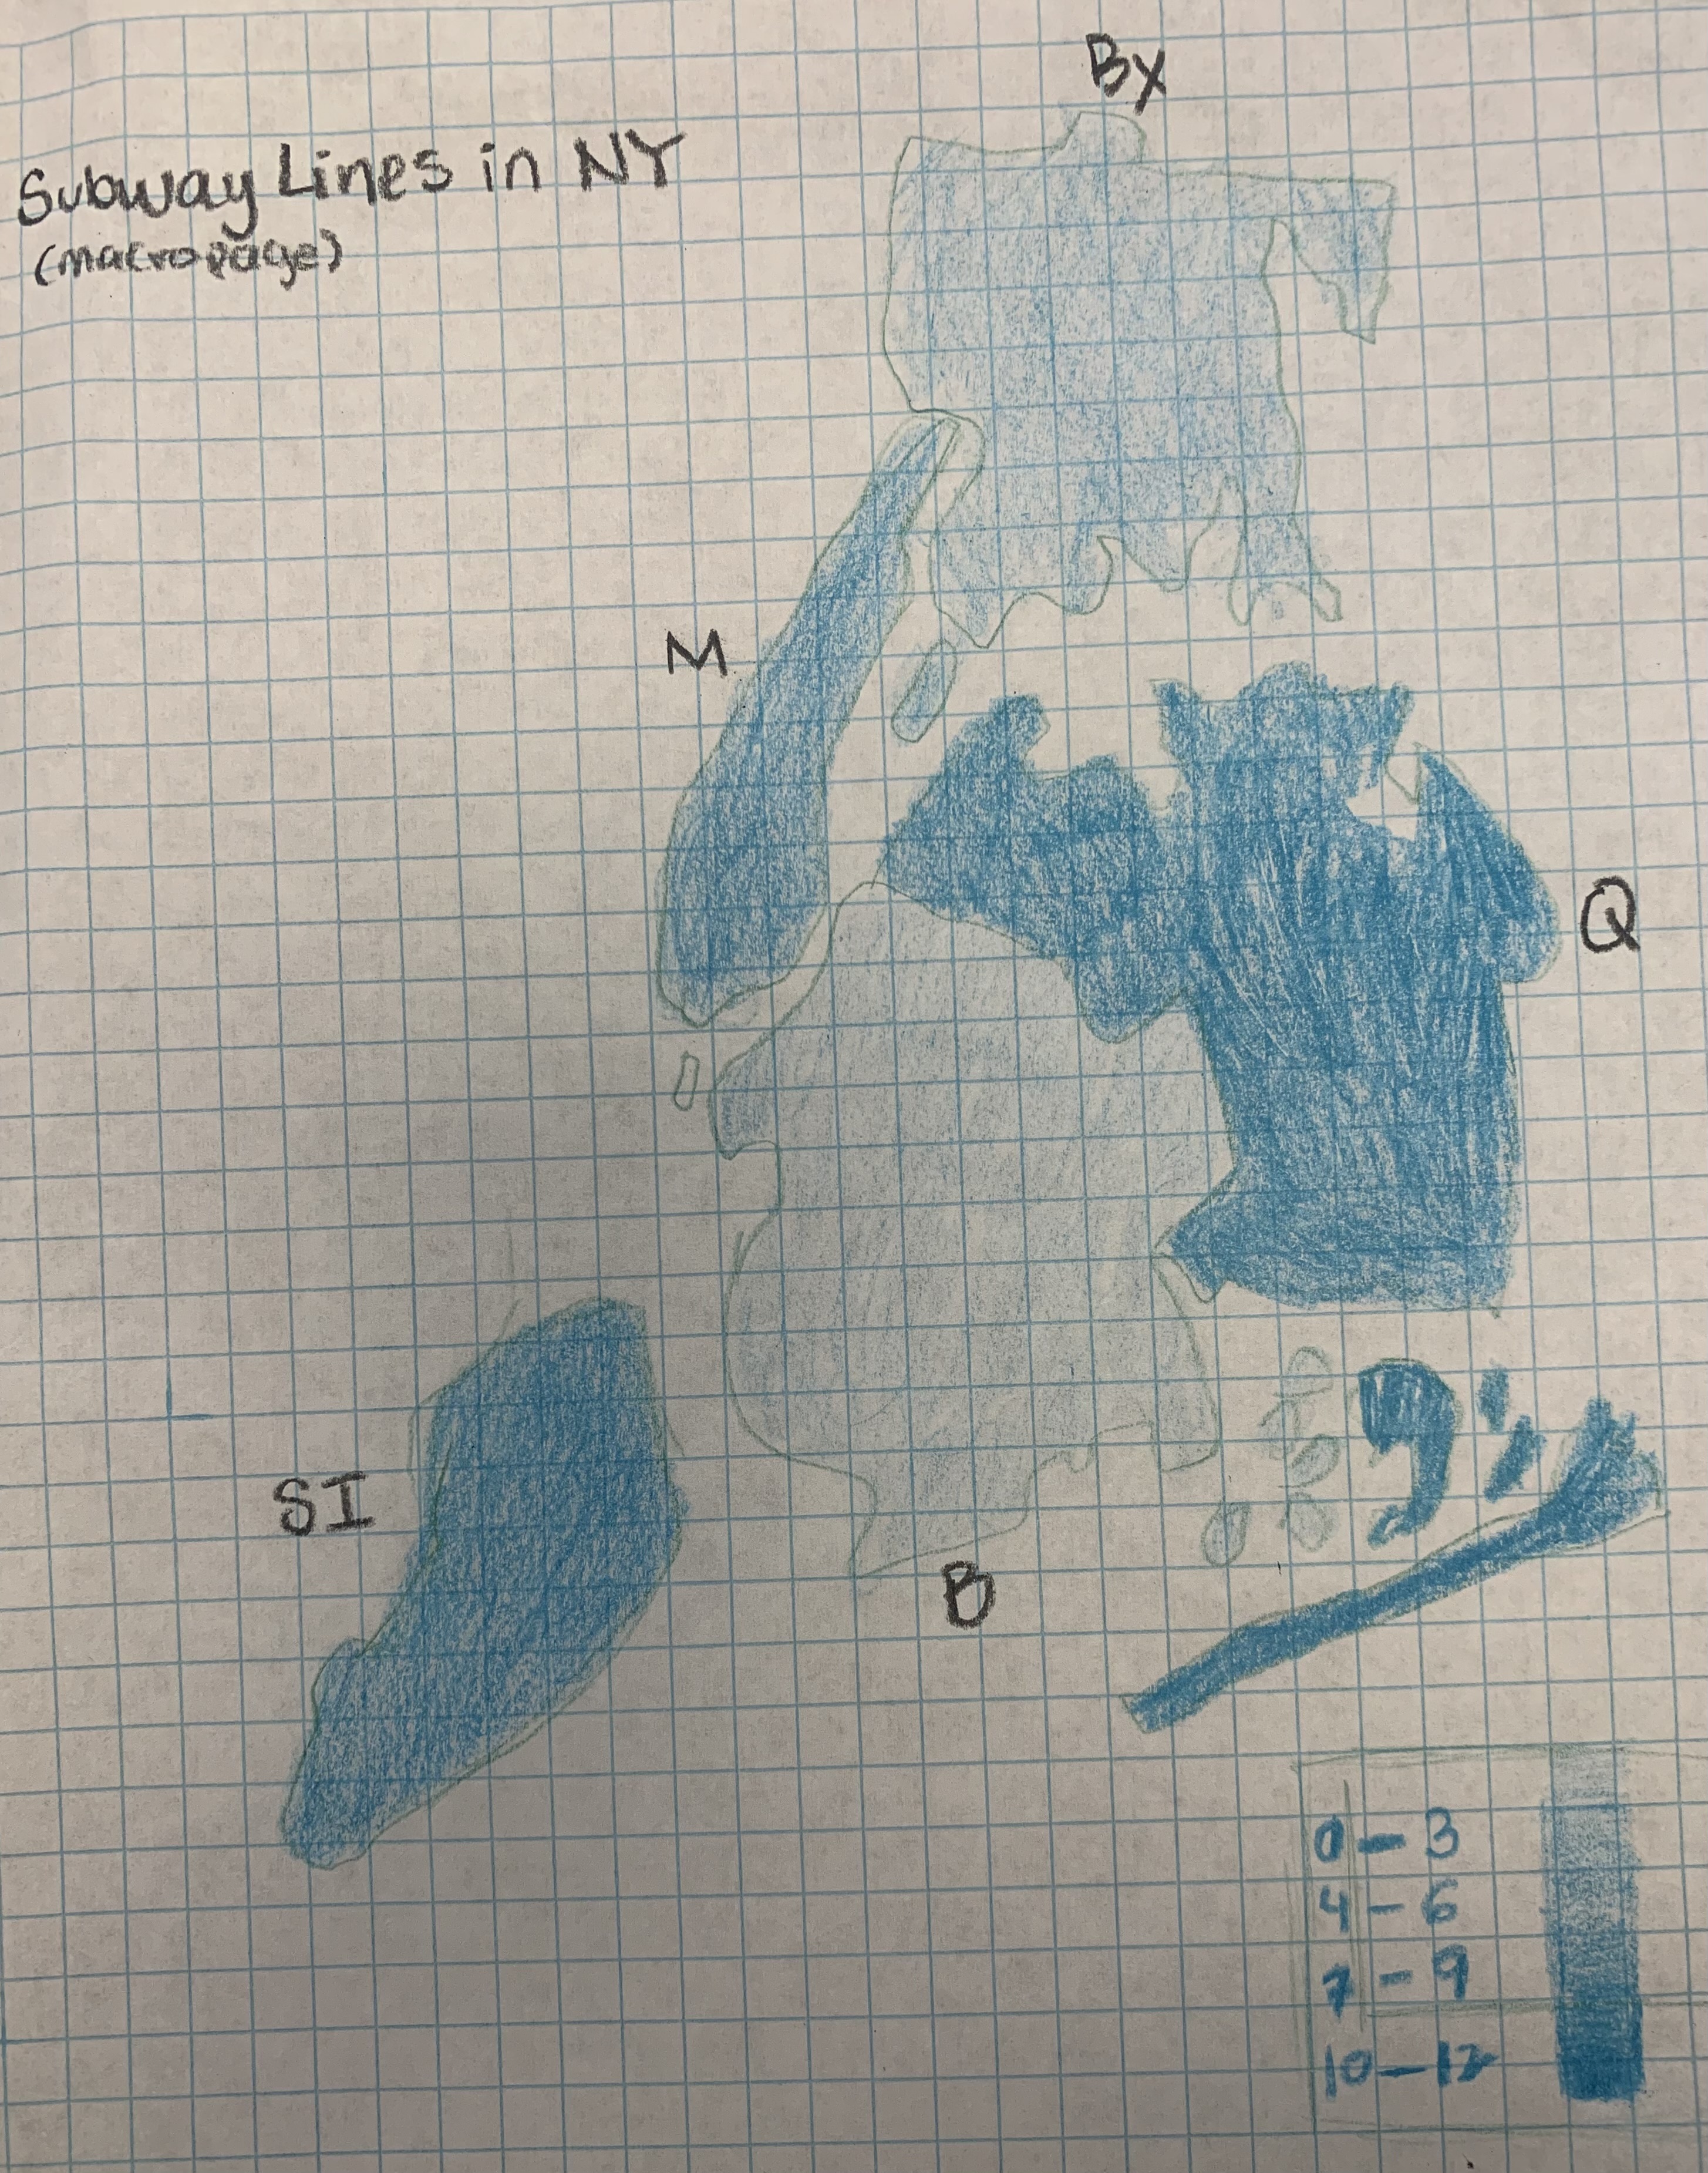 Subway Lines in NY
(macropage)
Bx
M
Q
SI
B
0-3
4-6
7-9
10-12